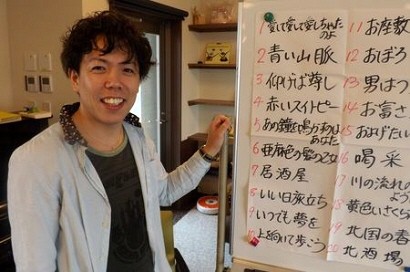 1 愛して愛して愛しちゃった
のよ
2 青い山脈
3 仰げば尊し
4 赤いスイトピー
5 あの鐘を鳴らすのは
あなた
6 亜麻色の髪の乙女
7 居酒屋
8 いい日旅立ち
9 いつでも夢を
10 上を向いて歩こう
11 お座敷
12 おぼろ
13 男はつ
14 お富さ
15 およげたい
16 喝采
17 川の流れの
よう
18 黄色いさくら
19 北国の春
20 北酒場